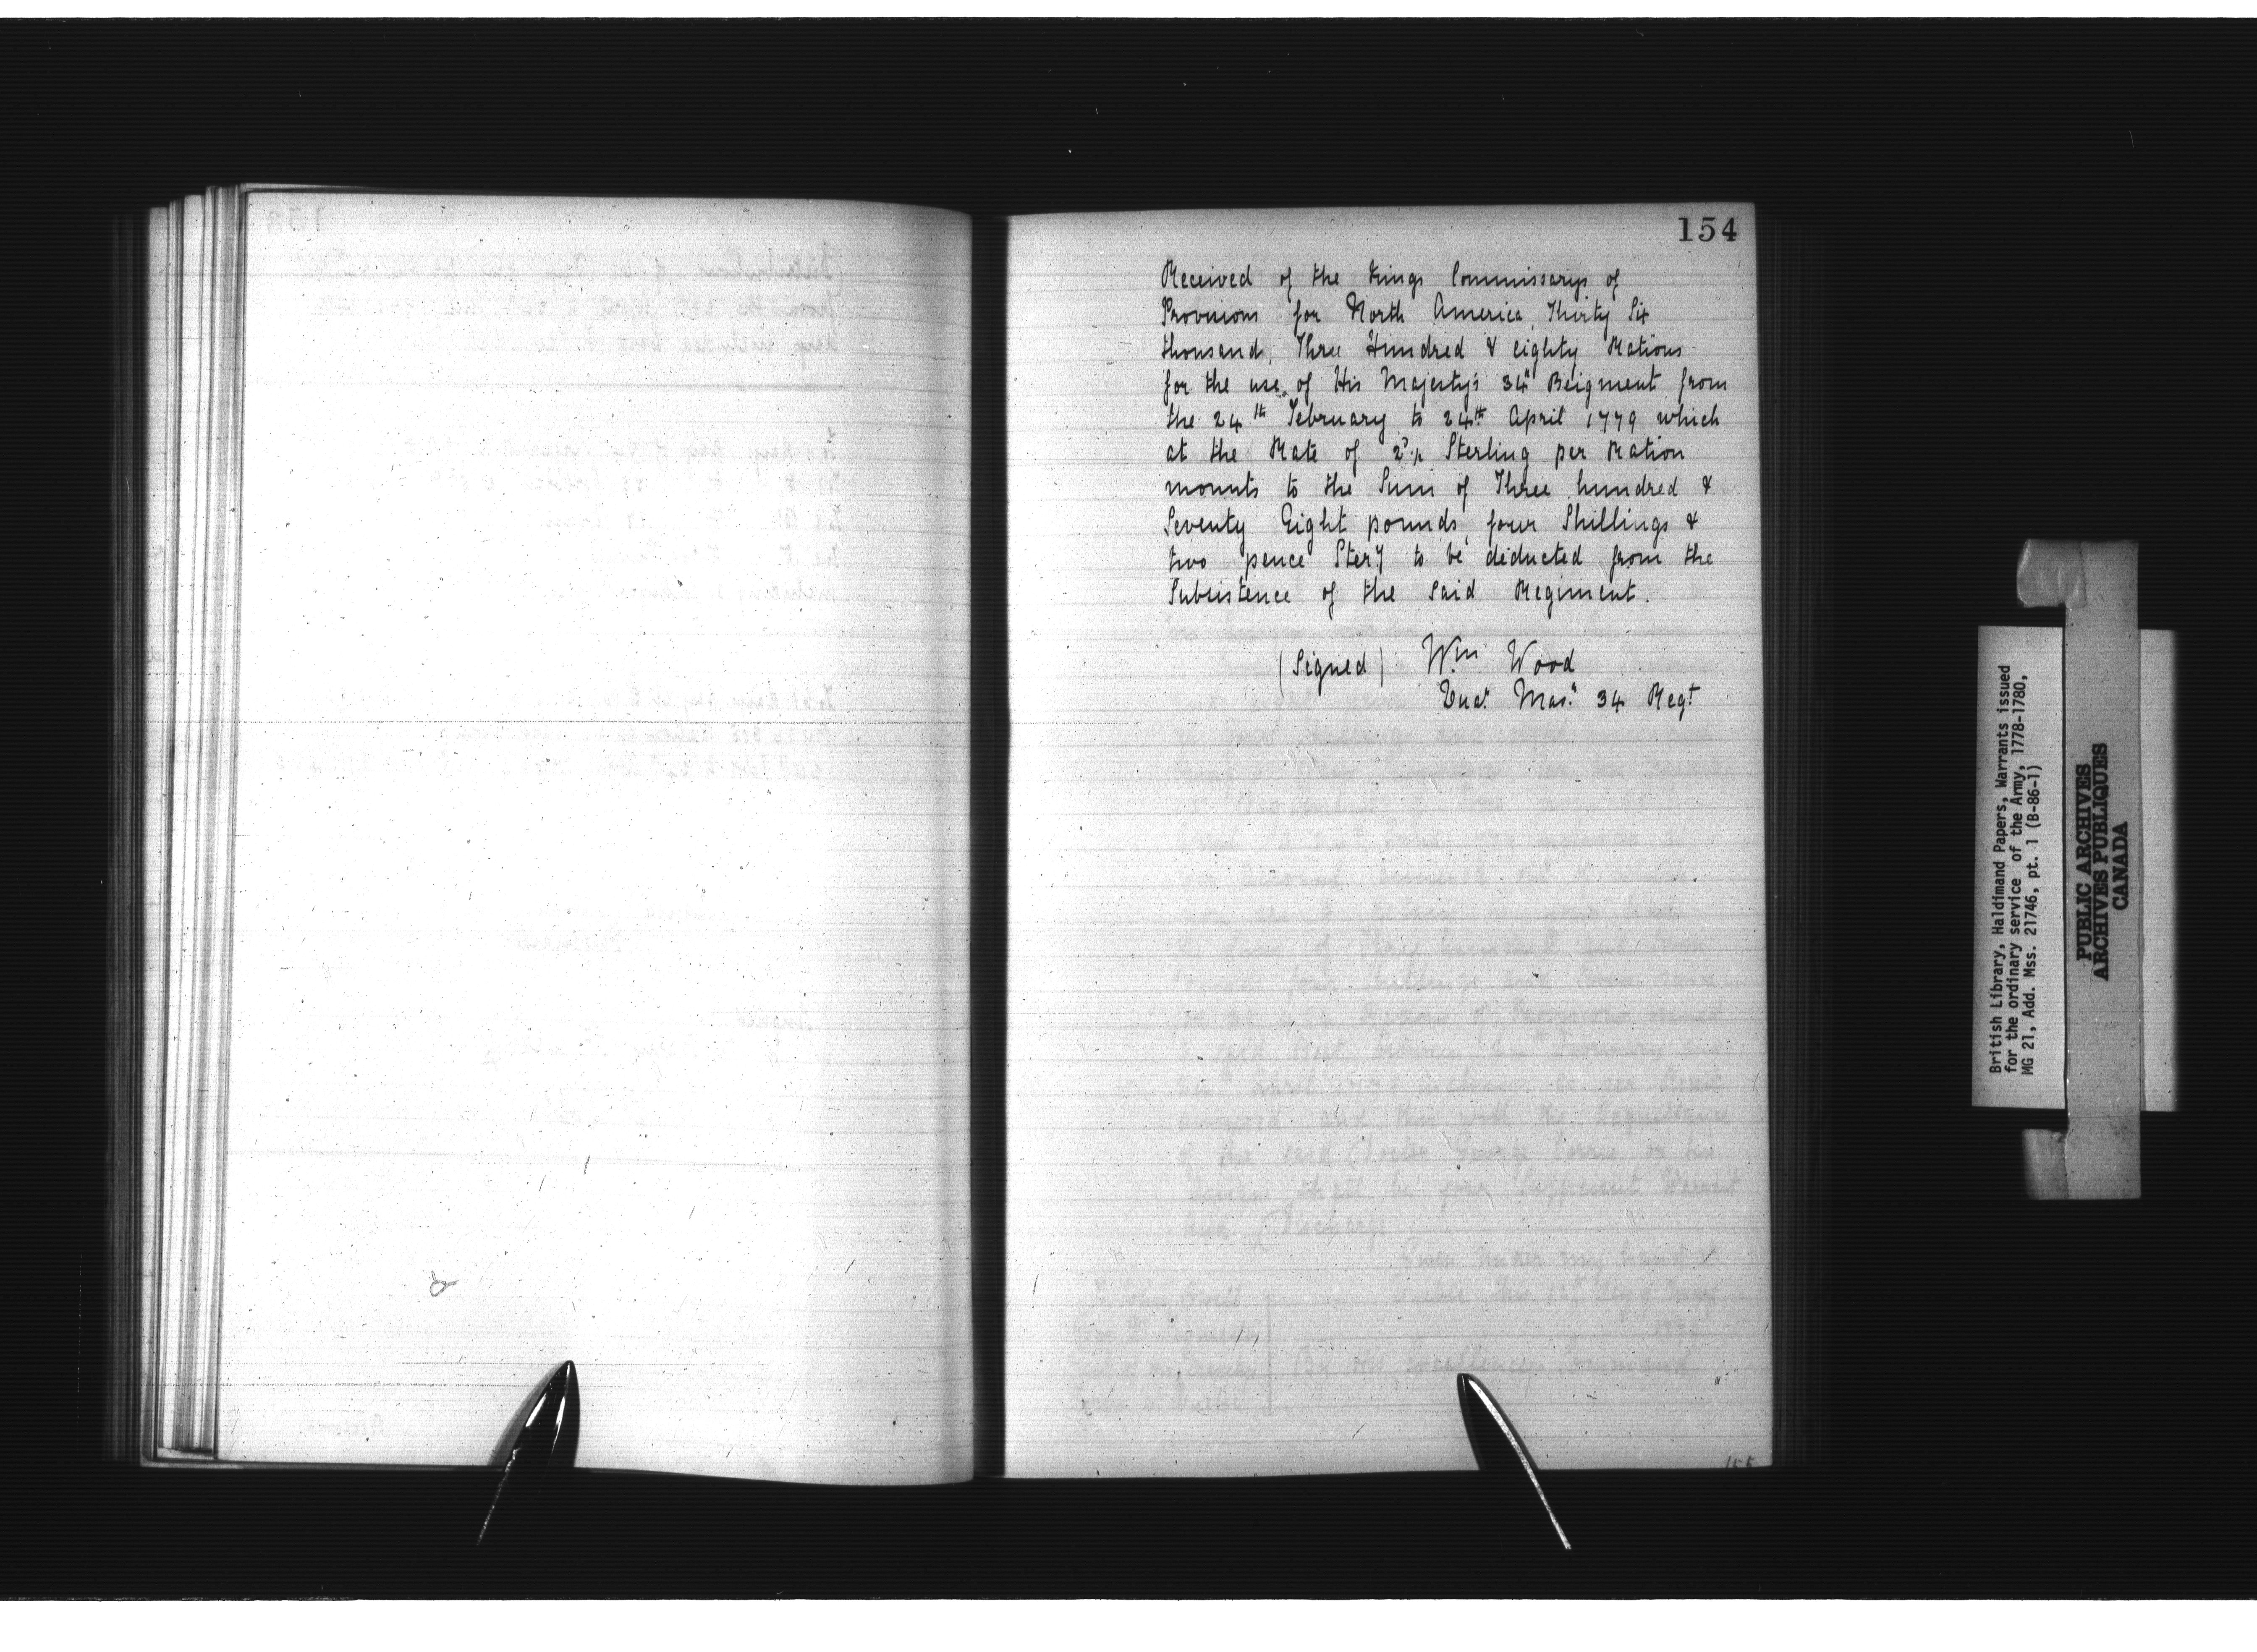 154
Received of the Kings Commissarys of
Provisions for North America, Thirty Six
thousand, Three Hundred & eighty Rations
for the use of His Majesty's 34th Reigment from
the 24th February to 24th April 1779 which
at the Rate of Sterling per Ration
mounts to the Sum of Three hundred &
Seventy Eight pounds, four Shillings &
two pence Sterg to be deducted from the
Subsistence of the Said Regiment.
(Signed) Wm Wood
Mas. 34 Regt
155
British Library, Haldimand Papers, Warrants issued
for the ordinary service of the Army, 1778-1780,
MG 21, Add. Mss. 21746, pt. 1 (B-86-1)
PUBLIC ARCHIVES
ARCHIVES PUBLIQUES
CANADA